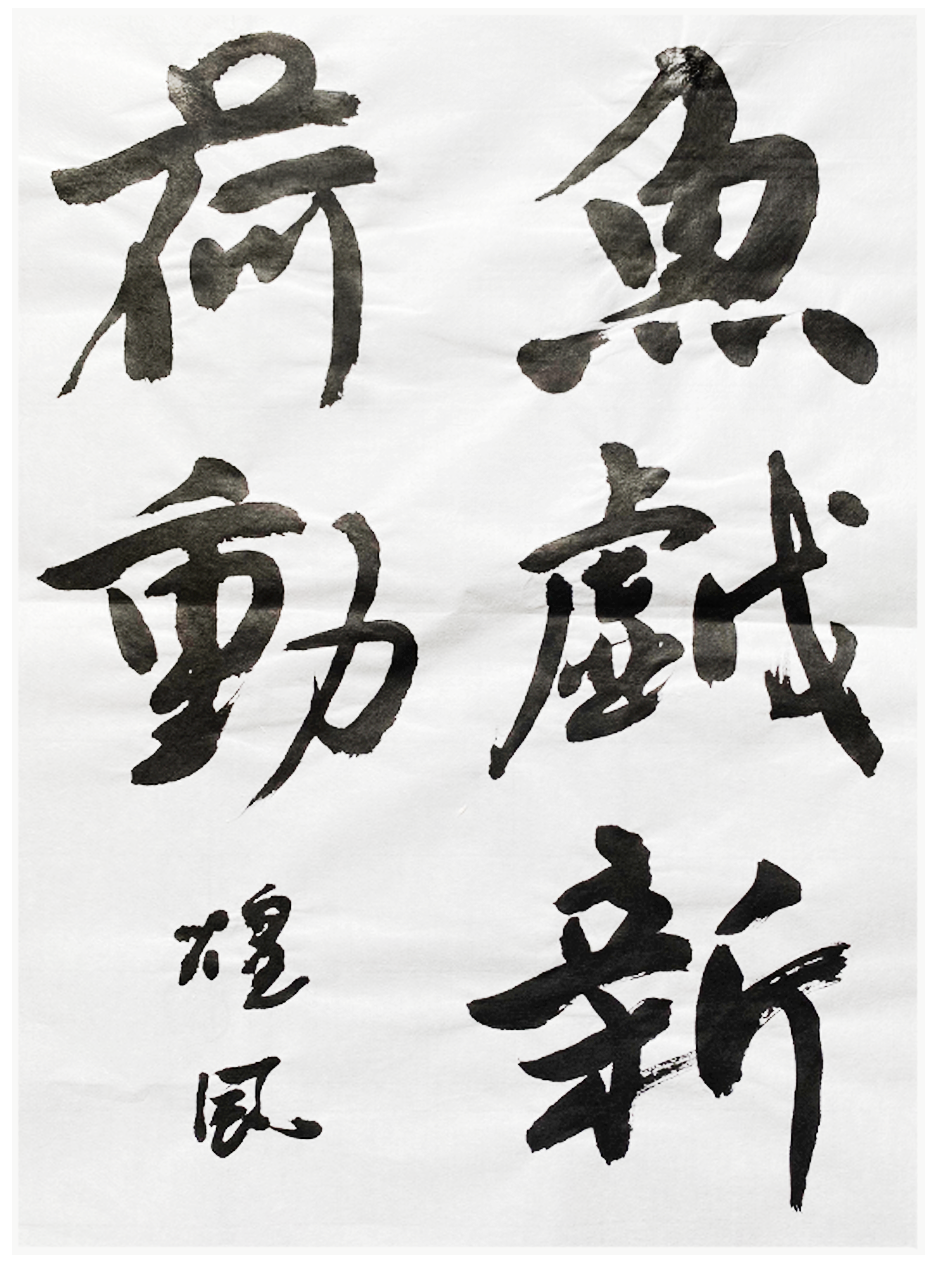 魚戲新
荷動
煌風